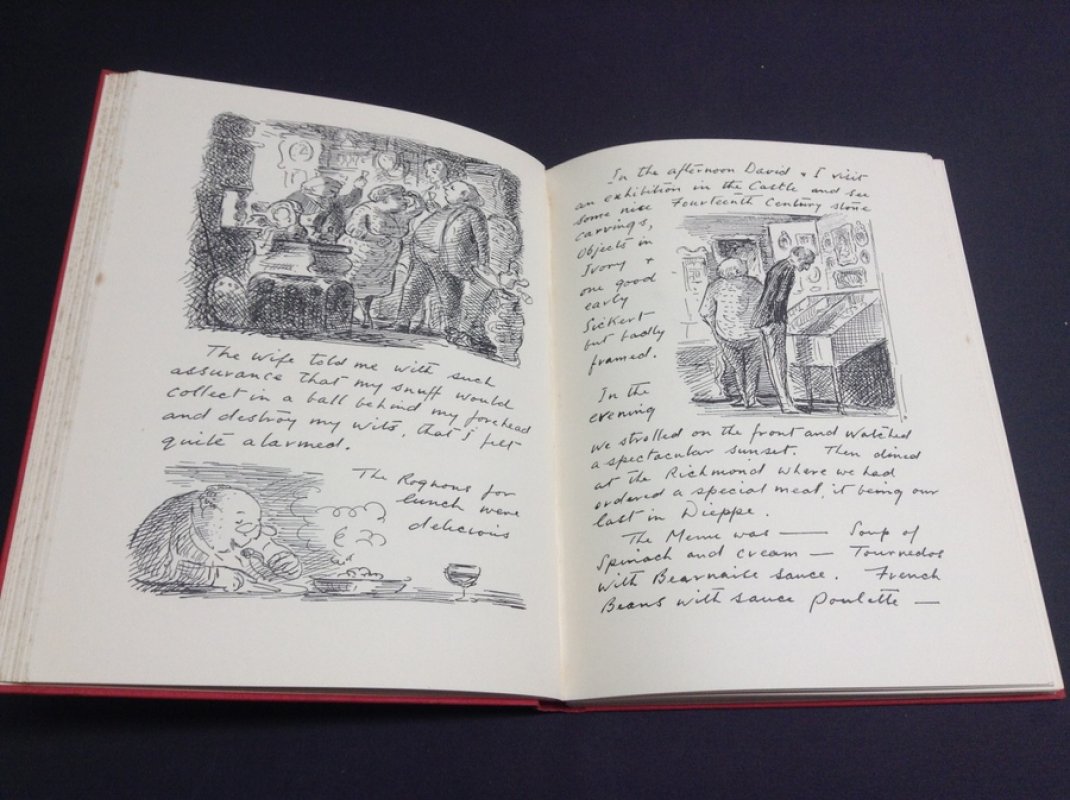 The wife told me with such
assurance that my snuff would
collect in a ball behind my forehead
and destroy my wits, that I felt
quite alarmed.
The Rognons for
lunch were
delicious
In the afternoon David & I visit
an exhibition in the Castle and see
some nice Fourteenth Century stone
carvings,
Objects in
Ivory &
one good
early
Sickert
but badly
framed.
In the
evening
we strolled on the front and watched
a spectacular sunset. Then dined
at the Richmond where we had
ordered a special meal, it being our
last in Dieppe.
The Menu was — Soup of
Spinach and cream — Tournedos
with Bearnaise sauce. French
Beans with sauce poulette —